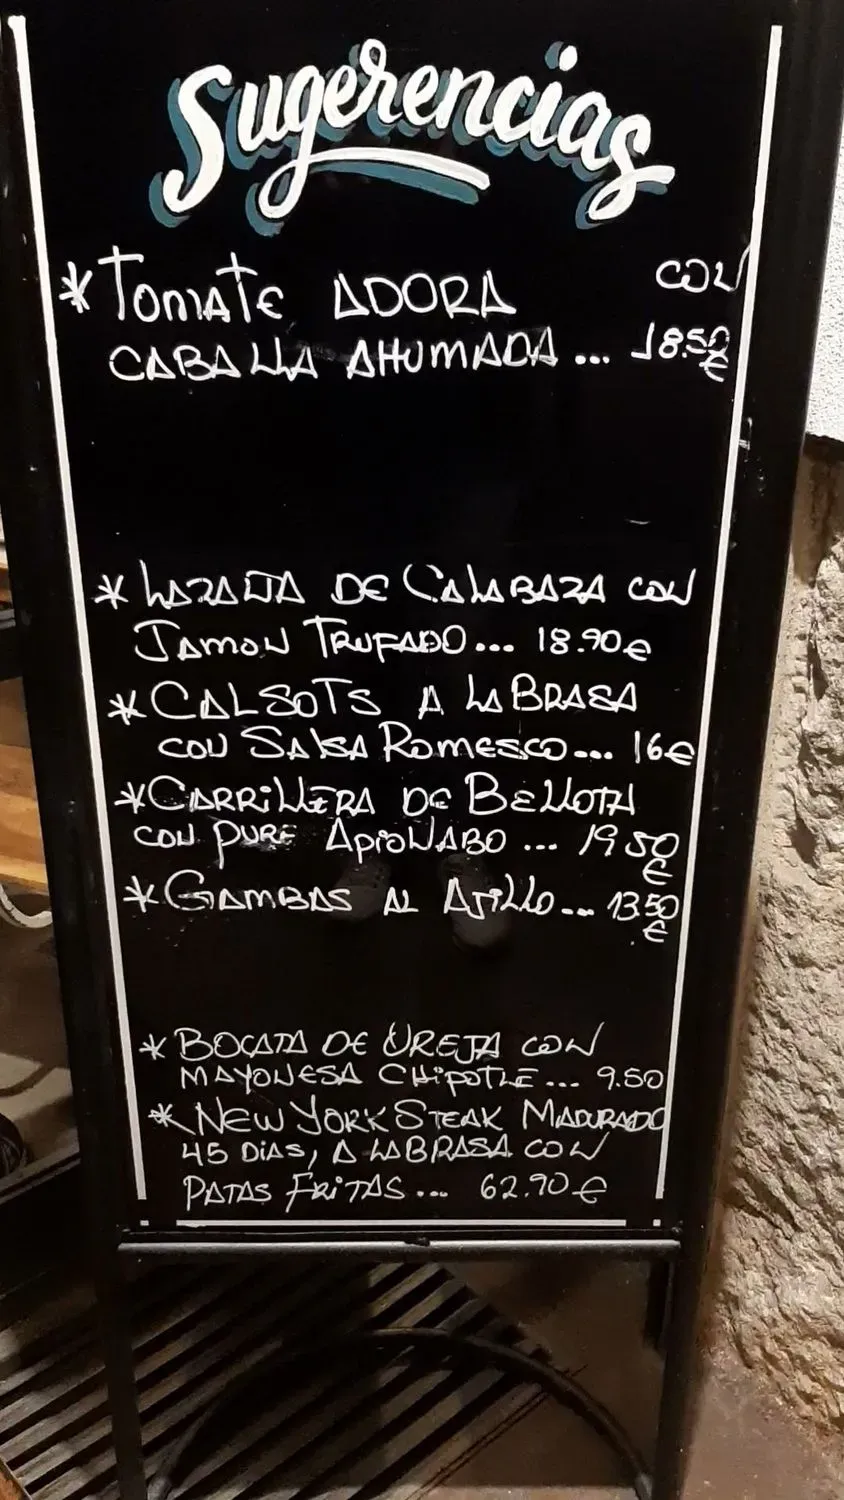 Sugerencias
* TOMATE ADORA CON
CABALLA AHUMADA ... 18.50 €
* LAZAÑA DE CALABAZA CON
JAMON TRUFADO... 18.90€
* CALSOTS A LA BRASA
CON SALSA ROMESCO... 16€
* CARRILLERA DE BELLOTA
CON PURE APIONABO ... 19.50 €
* GAMBAS AL AJILLO... 13.50 €
* BOCATA DE OREJA CON
MAYONESA CHIPOTLE... 9.50
* NEW YORK STEAK MADURADO
45 DIAS, A LA BRASA CON
PATAS FRITAS... 62.90€